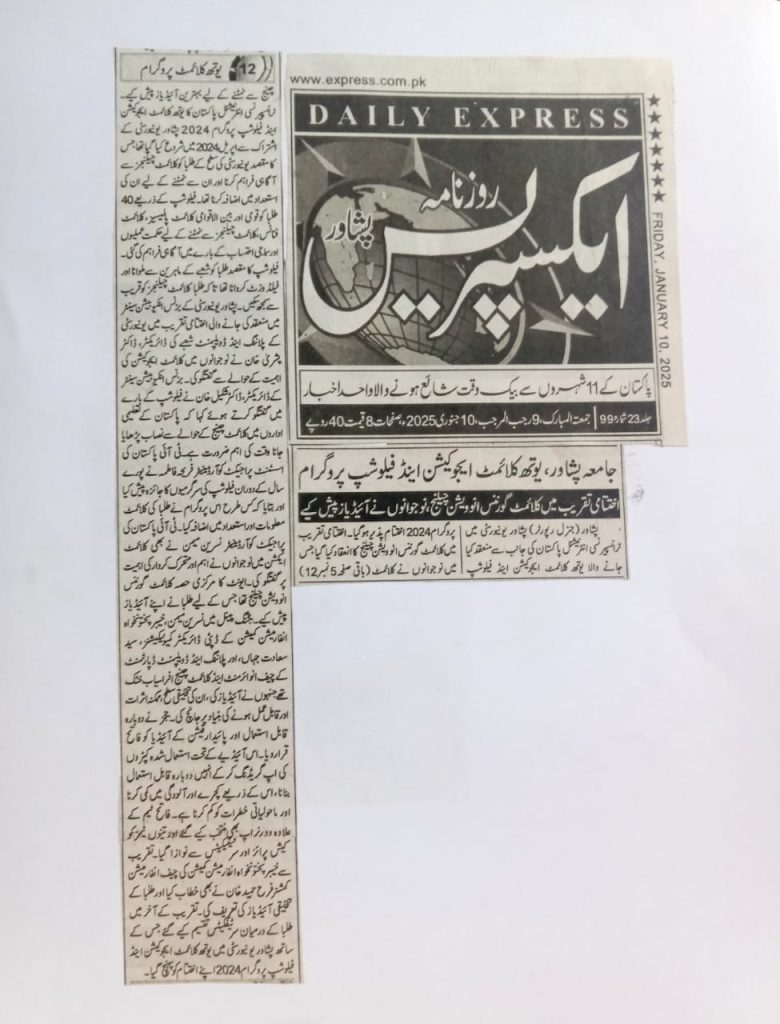 www.express.com.pk
DAILY EXPRESS
روزنامہ
ایکسپریس
پشاور
FRIDAY, JANUARY 10, 2025
پاکستان کے 11 شہروں سے بیک وقت شائع ہونے والا واحد اخبار
جلد 23 شمارہ 99 جمعۃ المبارک، 9 رجب المرجب، 10 جنوری 2025ء، صفحات 8 قیمت 40 روپے
جامعہ پشاور، یوتھ کلائمٹ ایجوکیشن اینڈ فیلوشپ پروگرام
اختتامی تقریب میں کلائمٹ گورننس انوویشن چیلنج، نوجوانوں نے آئیڈیاز پیش کیے
پشاور (جنرل رپورٹر) پشاور یونیورسٹی میں
ٹرانسپیرنسی انٹرنیشنل پاکستان کی جانب سے منعقد کیا
جانے والا یوتھ کلائمٹ ایجوکیشن اینڈ فیلوشپ
پروگرام 2024 اختتام پذیر ہوگیا۔ اختتامی تقریب
میں کلائمٹ گورننس انوویشن چیلنج کا انعقاد کیا گیا جس
میں نوجوانوں نے کلائمٹ (باقی صفحہ 5 نمبر 12)
12 یوتھ کلائمٹ پروگرام
چینج سے نمٹنے کے لیے بہترین آئیڈیاز پیش کیے۔
ٹرانسپیرنسی انٹرنیشنل پاکستان کا یوتھ کلائمٹ ایجوکیشن
اینڈ فیلوشپ پروگرام 2024 پشاور یونیورسٹی کے
اشتراک سے اپریل 2024 میں شروع کیا گیا تھا جس
کا مقصد یونیورسٹی کی سطح کے طلبا کو کلائمٹ چیلنجز سے
آگاہی فراہم کرنا اور ان سے نمٹنے کے لیے ان کی
استعداد میں اضافہ کرنا تھا۔ فیلوشپ کے ذریعے 40
طلبا کو قومی اور بین الاقوامی کلائمٹ پالیسیز، کلائمٹ
فنانس، کلائمٹ چیلنجز سے نمٹنے کے لیے حکمت عملیوں
اور سماجی احتساب کے بارے میں آگاہی فراہم کی گئی۔
فیلوشپ کا مقصد طلبا کو شعبے کے ماہرین سے ملوانا اور
فیلڈ وزٹ کروانا تھا تاکہ طلبا کلائمٹ چیلنجز کو قریب
سے سمجھ سکیں۔ پشاور یونیورسٹی کے بزنس انکیوبیشن سینٹر
میں منعقد کی جانے والی اختتامی تقریب میں یونیورسٹی
کے پلاننگ اینڈ ڈویلپمنٹ شعبے کی ڈائریکٹر، ڈاکٹر
بشریٰ خان نے نوجوانوں میں کلائمٹ ایجوکیشن کی
اہمیت کے حوالے سے گفتگو کی۔ بزنس انکیوبیشن سینٹر
کے ڈائریکٹر، ڈاکٹر شکیل خان نے فیلوشپ کے بارے
میں گفتگو کرتے ہوئے کہا کہ پاکستان کے تعلیمی
اداروں میں کلائمٹ چینج کے حوالے سے نصاب پڑھایا
جانا وقت کی اہم ضرورت ہے۔ ٹی آئی پاکستان کی
اسسٹنٹ پراجیکٹ کوآرڈینیٹر فریحہ فاطمہ نے پورے
سال کے دوران فیلوشپ کی سرگرمیوں کا جائزہ پیش کیا
اور بتایا کہ کس طرح اس پروگرام نے طلبا کی کلائمٹ
معلومات اور استعداد میں اضافہ کیا۔ ٹی آئی پاکستان کی
پراجیکٹ کوآرڈینیٹر نسرین میمن نے بھی کلائمٹ
ایکشن میں نوجوانوں نے اہم اور متحرک کردار کی اہمیت
پر گفتگو کی۔ ایونٹ کا مرکزی حصہ کلائمٹ گورننس
انوویشن چیلنج تھا جس کے لیے طلبا نے اپنے آئیڈیاز
پیش کیے۔ ججنگ پینل میں نسرین میمن، خیبر پختونخواہ
انفارمیشن کمیشن کے ڈپٹی ڈائریکٹر کمیونیکیشنز، سید
سعادت جہاں، اور پلاننگ اینڈ ڈویلپمنٹ ڈپارٹمنٹ
کے چیف انوائرمنٹ اینڈ کلائمٹ چینج افراسیاب خٹک
تھے جنہوں نے آئیڈیاز کی، ان کی تخلیقی سطح، ممکنہ اثرات
اور قابل عمل ہونے کی بنیاد پر جانچ کی۔ ججز نے دوبارہ
قابل استعمال اور پائیدار فیشن کے آئیڈیا کو فاتح
قرار دیا۔ اس آئیڈیے کے تحت استعمال شدہ کپڑوں
کی اپ گریڈنگ کر کے انہیں دوبارہ قابل استعمال
بنانا، اس کے ذریعے کچرے اور آلودگی میں کمی کرنا
اور ماحولیاتی خطرات کو کم کرنا ہے۔ فاتح ٹیم کے
علاوہ دو رنر اپ بھی منتخب کیے گئے اور تینوں ٹیمز کو
کیش پرائز اور سرٹیفکیٹس سے نوازا گیا۔ تقریب
سے خیبر پختونخواہ انفارمیشن کمیشن کی چیف انفارمیشن
کمشنر فرح حمید خان نے بھی خطاب کیا اور طلبا کے
تخلیقی آئیڈیاز کی تعریف کی۔ تقریب کے آخر میں
طلبا کے درمیان سرٹیفکیٹس تقسیم کیے گئے جس کے
ساتھ پشاور یونیورسٹی میں یوتھ کلائمٹ ایجوکیشن اینڈ
فیلوشپ پروگرام 2024 اپنے اختتام کو پہنچ گیا۔